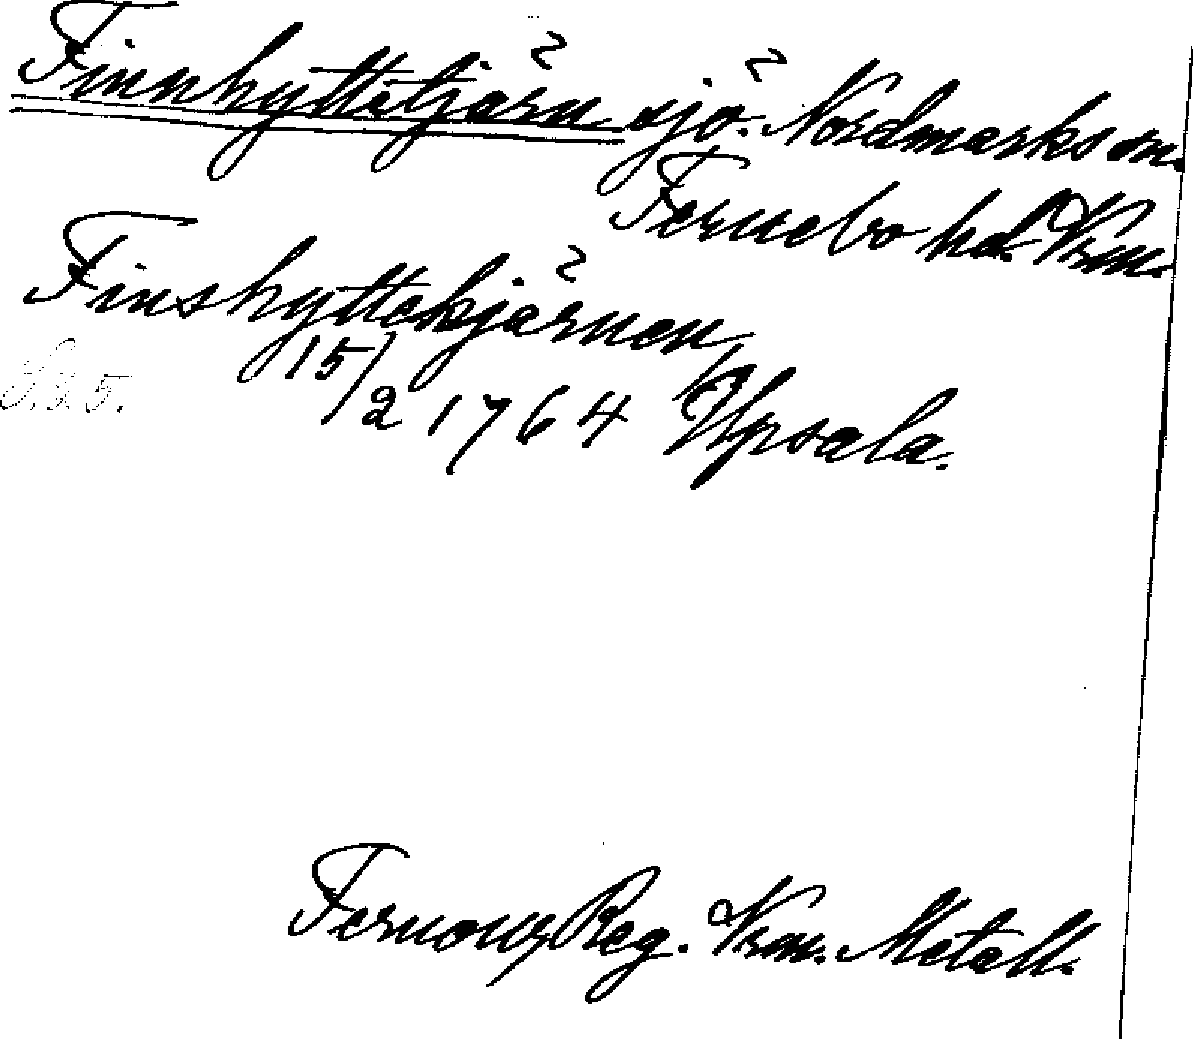 Finnhyttetjärn sjö. Nordmarks sn.
Fernebo hd. Vrm.
Finshyttekjärnen,
15/2 1764 Upsala.
Fernow, Reg. Vrm. Metall.